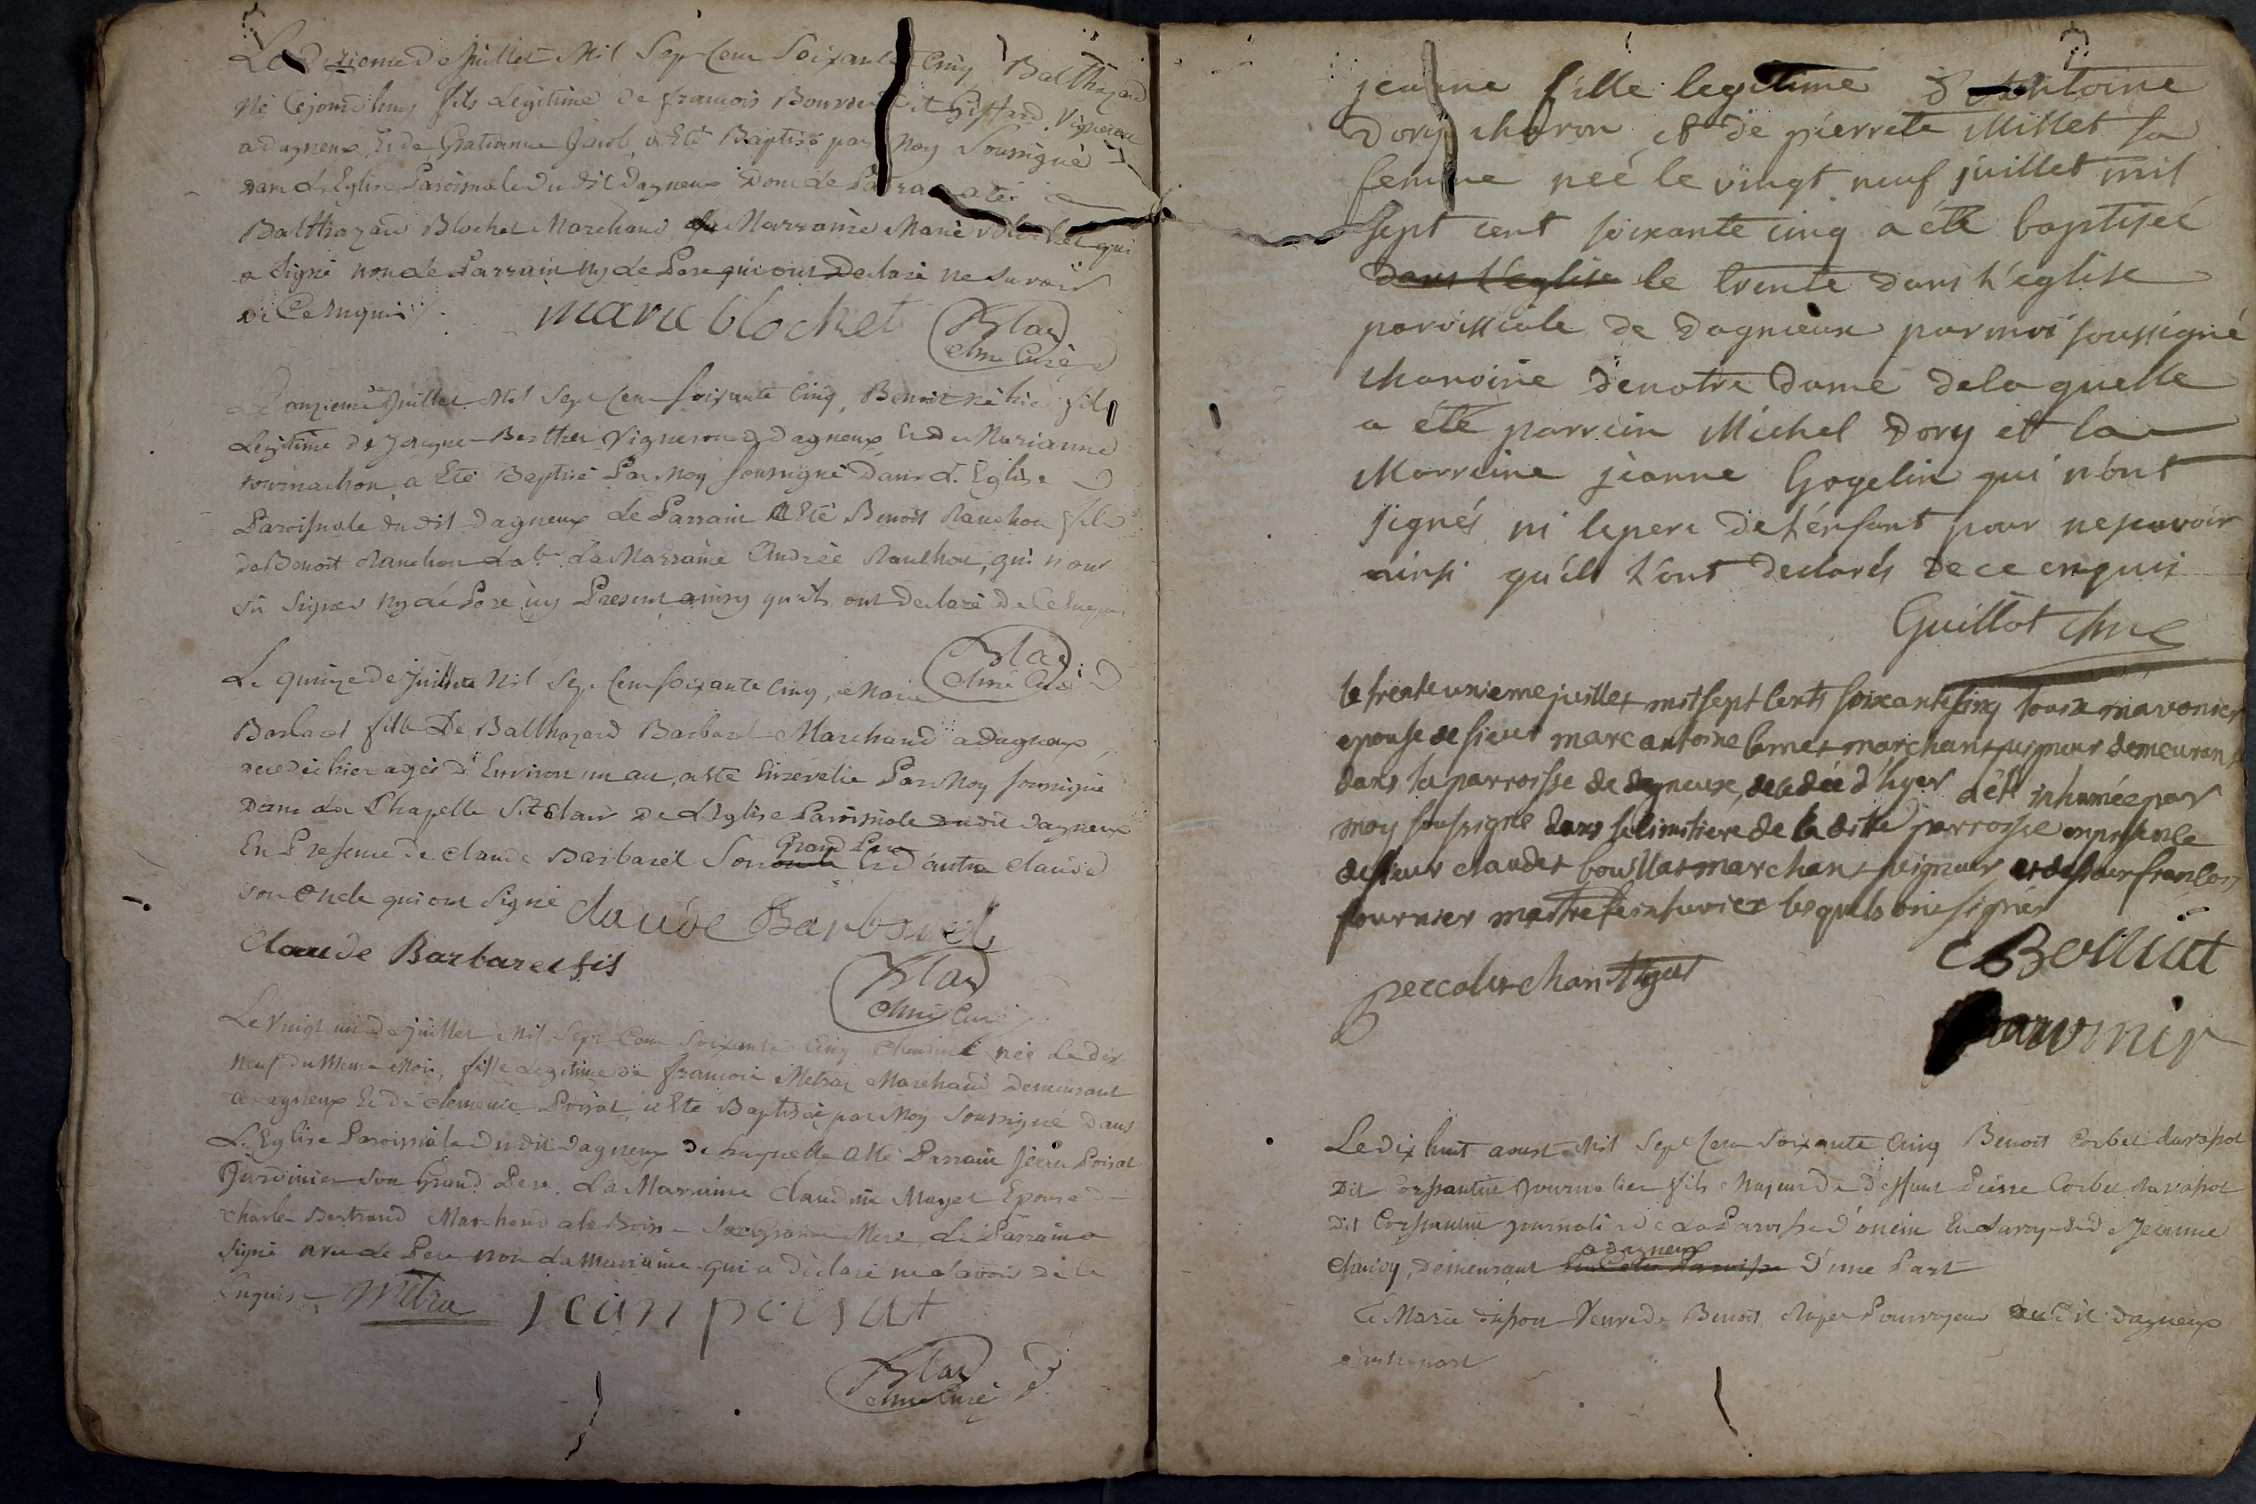 Le dixieme de Juillet Mil Sept Cent Soixante Cinq Balthazard
Né Cejourdhuy fils Legitime de francois Bourdet dit Giffard Vigneron
a dagneux, Et de Gratianne Jacob, a Eté Baptisé par Moy Soussigné
Dans L'Eglise Paroissiale du dit dagneux Dont Le Parrain a Eté
Balthazard Blochet Marchand La Marraine Marie Blochet qui
a Signé non Le Parrain ny Le Pere qui ont Declaré ne Savoir
De Ce Enquis
marie blochet
Curé
Le onzieme de Juillet Mil Sept Cent Soixante Cinq, Benoit né hier fils
Legitime de Berthet Vigneron a Dagneux Et de Marianne
tournachon, a Eté Baptisé Par Moy Soussigné Dans L'Eglise
Paroissiale du dit Dagneux Le Parrain A Eté Benoit Rauchon fils
de Benoit Rauchon Lab. La Marraine Andrée Rauchon, qui n'ont
Sû Signer ny Le Pere icy Present ainsy qu'ils ont declaré De Ce Enquis
Curé
Le quinze de Juillet Mil Sept Cent Soixante Cinq, Marie
Barbaret fille De Balthazard Barbaret Marchand a Dagneux,
decedée hier agée d'Environ un an, a Eté Ensevelie Par Moy Soussigné
Dans La Chapelle St Clair De L'Eglise Paroissiale du dit Dagneux
En Presence de Claude Barbaret Son Grand Pere Et d'autre Claude
son Oncle qui ont Signé
Claude Barbaret
Claude Barbaret fils
Curé
Le Vingt un de juillet Mil Sept Cent Soixante Cinq Claudine née Le dix
Neuf du Meme Mois, fille Legitime de francois Metras Marchand Demeurant
a Dagneux Et de Clemence Poisat, a Eté Baptisée par Moy Soussigné dans
L'Eglise Paroissiale du dit Dagneux De Laquelle a Eté Parrain Jean Poisat
Jardinier Son Grand Pere. La Marraine Claudine Mayet Epouse de
Charle Bertrand Marchand a La Boisse Sa Grand Mere, Le Parrain a
Signé avec Le Pere non La Marraine qui a Declaré ne Savoir De Ce
Enquise
Metra
jean poisat
Curé
jeanne fille legitime d'Antoine
Dory charon et de pierrete Millet sa
femme née le vingt neuf juillet mil
sept cent soixante cinq a été baptisée
dans l'église le trente dans l'église
paroissiale de dagnieux par moi soussigné
chanoine de notre dame de laquelle
a été parrein Michel Dory et la
Marreine jeanne Gogelin qui n'ont
signés ni le pere de l'enfant pour ne savoir
ainsi qu'ils l'ont declarés de ce enquis
Guillot chne
le trente unieme juillet mil sept cents soixante cinq
epouse de sieur marc antoine marchant demeurant
dans la parroisse de dagneux, decedée d'hyer a été inhumée par
moy soussigné dans le cimitiere de la dite parroisse en presence
de sieur claude marchant et de sieur francois
fournier maitre lesquels ont signés
C Bouillat
fournier
Le dix huit aoust Mil Sept Cent Soixante Cinq Benoit Corbet
Dit Journalier fils Majeur de deffunt Pierre Corbet
Dit journalier de La Paroisse Et de Jeanne
Demeurant a dagneux D'une Part
Et Marie Veuve de Benoit du dit Dagneux
d'autre part